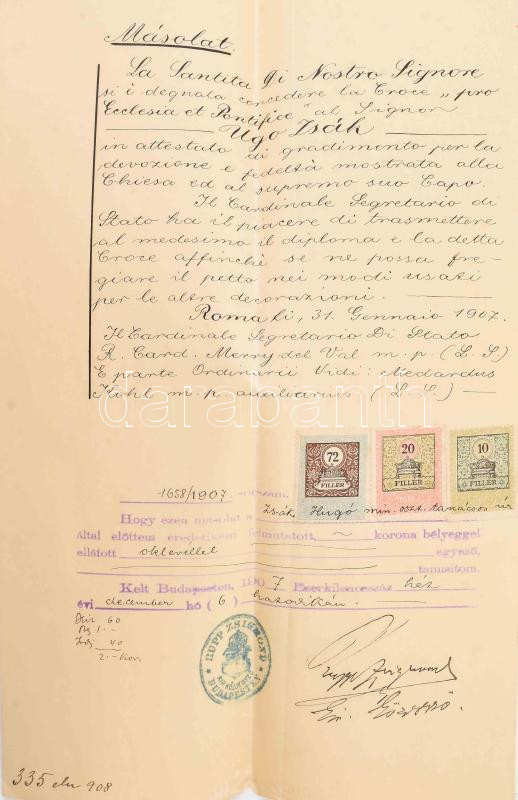 Másolat.
La Santita Di Nostro Signore
si è degnata concedere la Croce „pro
Ecclesia et Pontifice" al Signor
Ugo Zsák
in attestato di gradimento per la
devozione e fedeltà mostrata alla
Chiesa ed al supremo suo Capo.
Il Cardinale Segretario di
Stato ha il piacere di trasmettere
al medesimo il diploma e la detta
Croce affinchè se ne possa fre-
giare il petto nei modi usati
per le altre decorazioni.
Roma li, 31. Gennaio 1907.
Il Cardinale Segretario Di Stato
R. Card. Merry del Val m. p. (L. S)
E parte Ordinarii Vidi: Medardus
Kohl m. p. auxiliarius (L. S.)
darabanth
72 FILLÉR
20 FILLÉR
10 FILLÉR
1658/1907. ügyszám.
Hogy ezen másolat a Zsák Hugó min. oszt. tanácsos úr
által előttem eredetiként felmutatott, korona bélyeggel
ellátott oklevéllel egyező,
tanusítom.
Kelt Budapesten, 1907 Ezerkilenczszáz hét
évi december hó (6) hatodikán.
60
1.-
40
2.-
RUPP ZSIGMOND
KIR. KÖZJEGYZŐ
BUDAPESTEN
Rupp Zsigmond
335 908